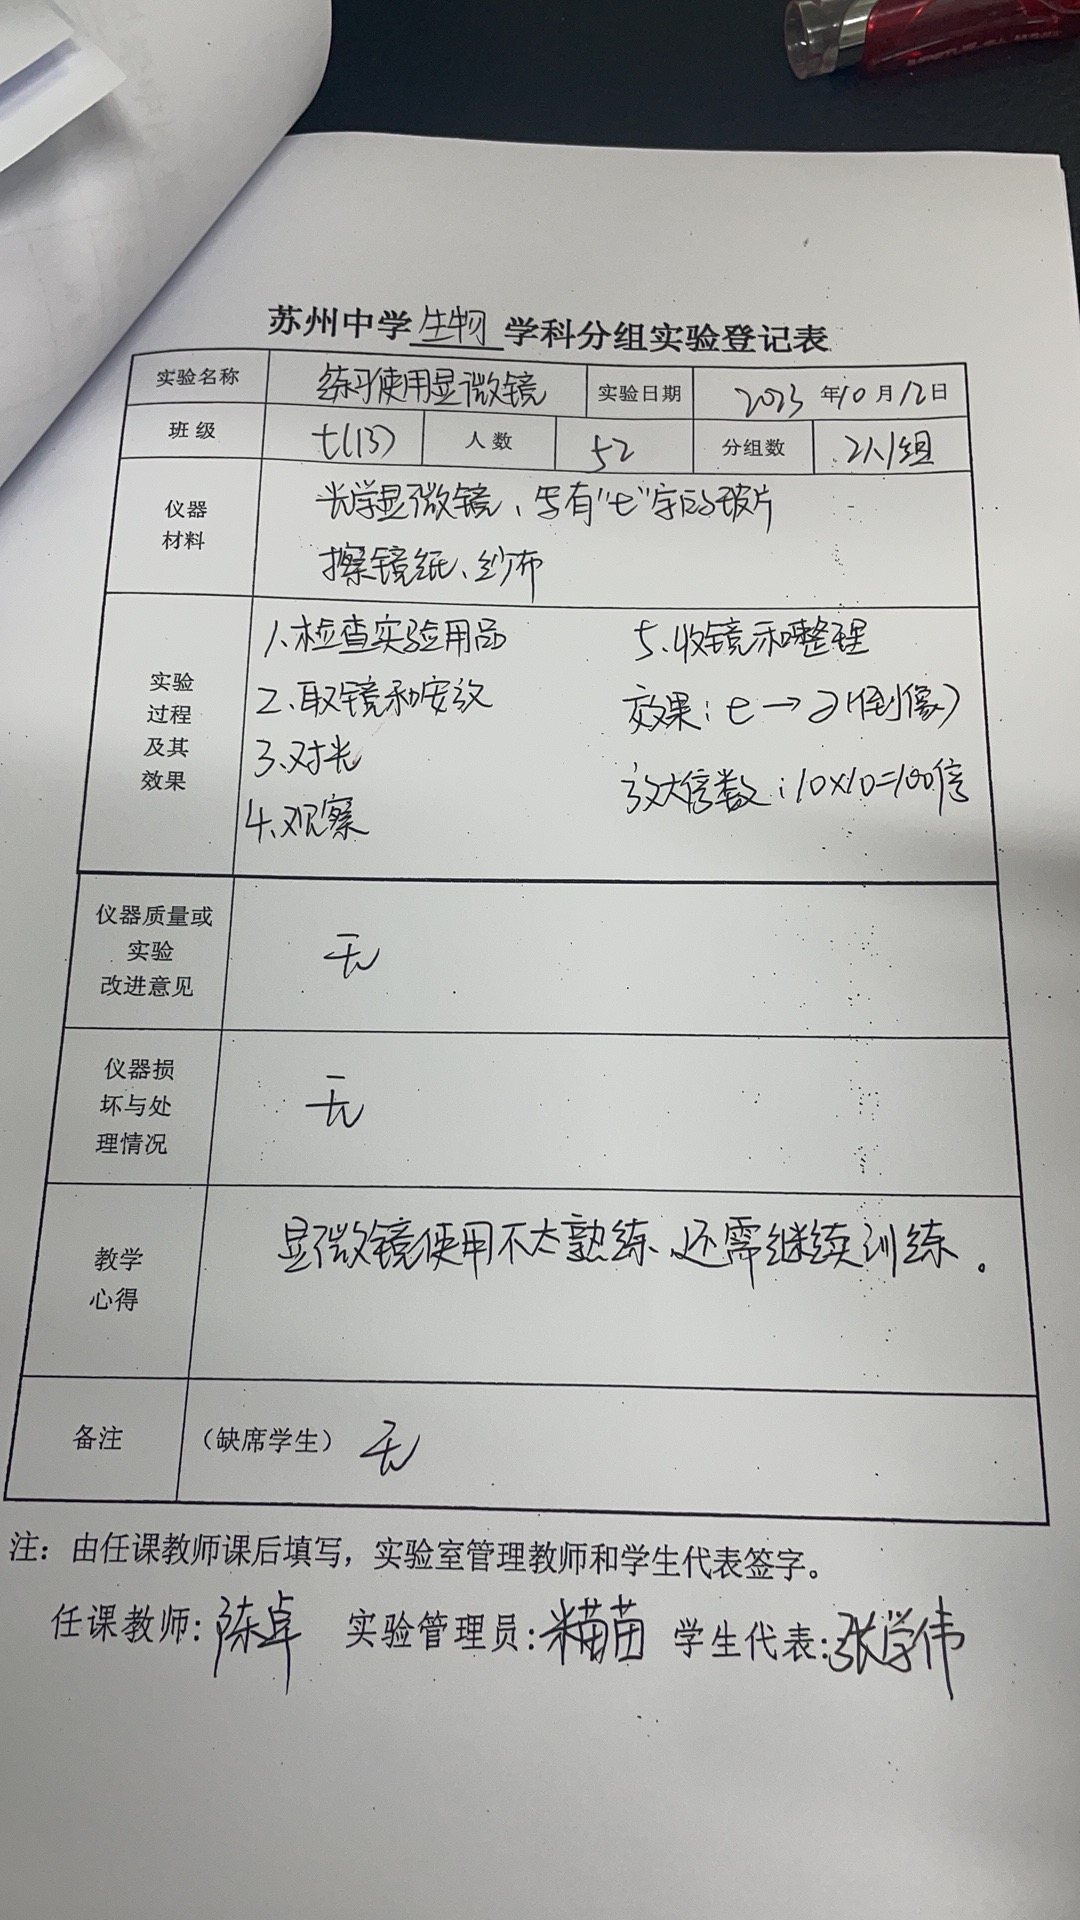 苏州中学生物学科分组实验登记表
实验名称 练习使用显微镜 实验日期 2023年10月12日
班级 七(13) 人数 52 分组数 2人1组
仪器材料
光学显微镜、写有"e"字的玻片
擦镜纸、纱布
实验过程及其效果
1、检查实验用品
2、取镜和安放
3、对光
4、观察
5、收镜和整理
效果：e→ə(倒像)
放大倍数：10×10=100倍
仪器质量或实验改进意见
无
仪器损坏与处理情况
无
教学心得
显微镜使用不太熟练、还需继续训练。
备注 （缺席学生） 无
注：由任课教师课后填写，实验室管理教师和学生代表签字。
任课教师:陈卓 实验管理员: 学生代表:张学伟